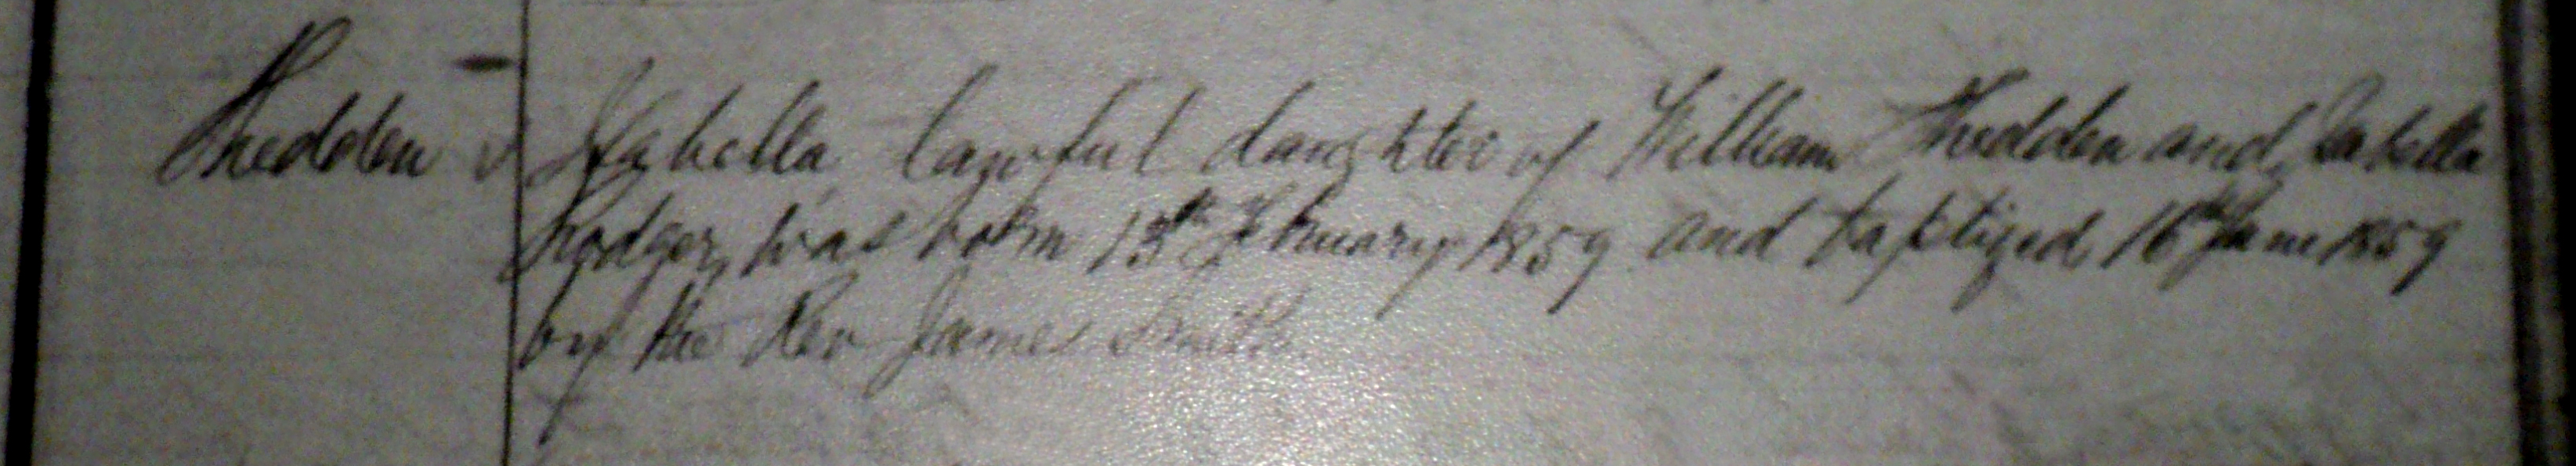 Shedden Isabella lawful daughter of William Shedden and Isabella
Rodger, was born 13th February 1859 and baptized 16th June 1859
by the Rev James Smith